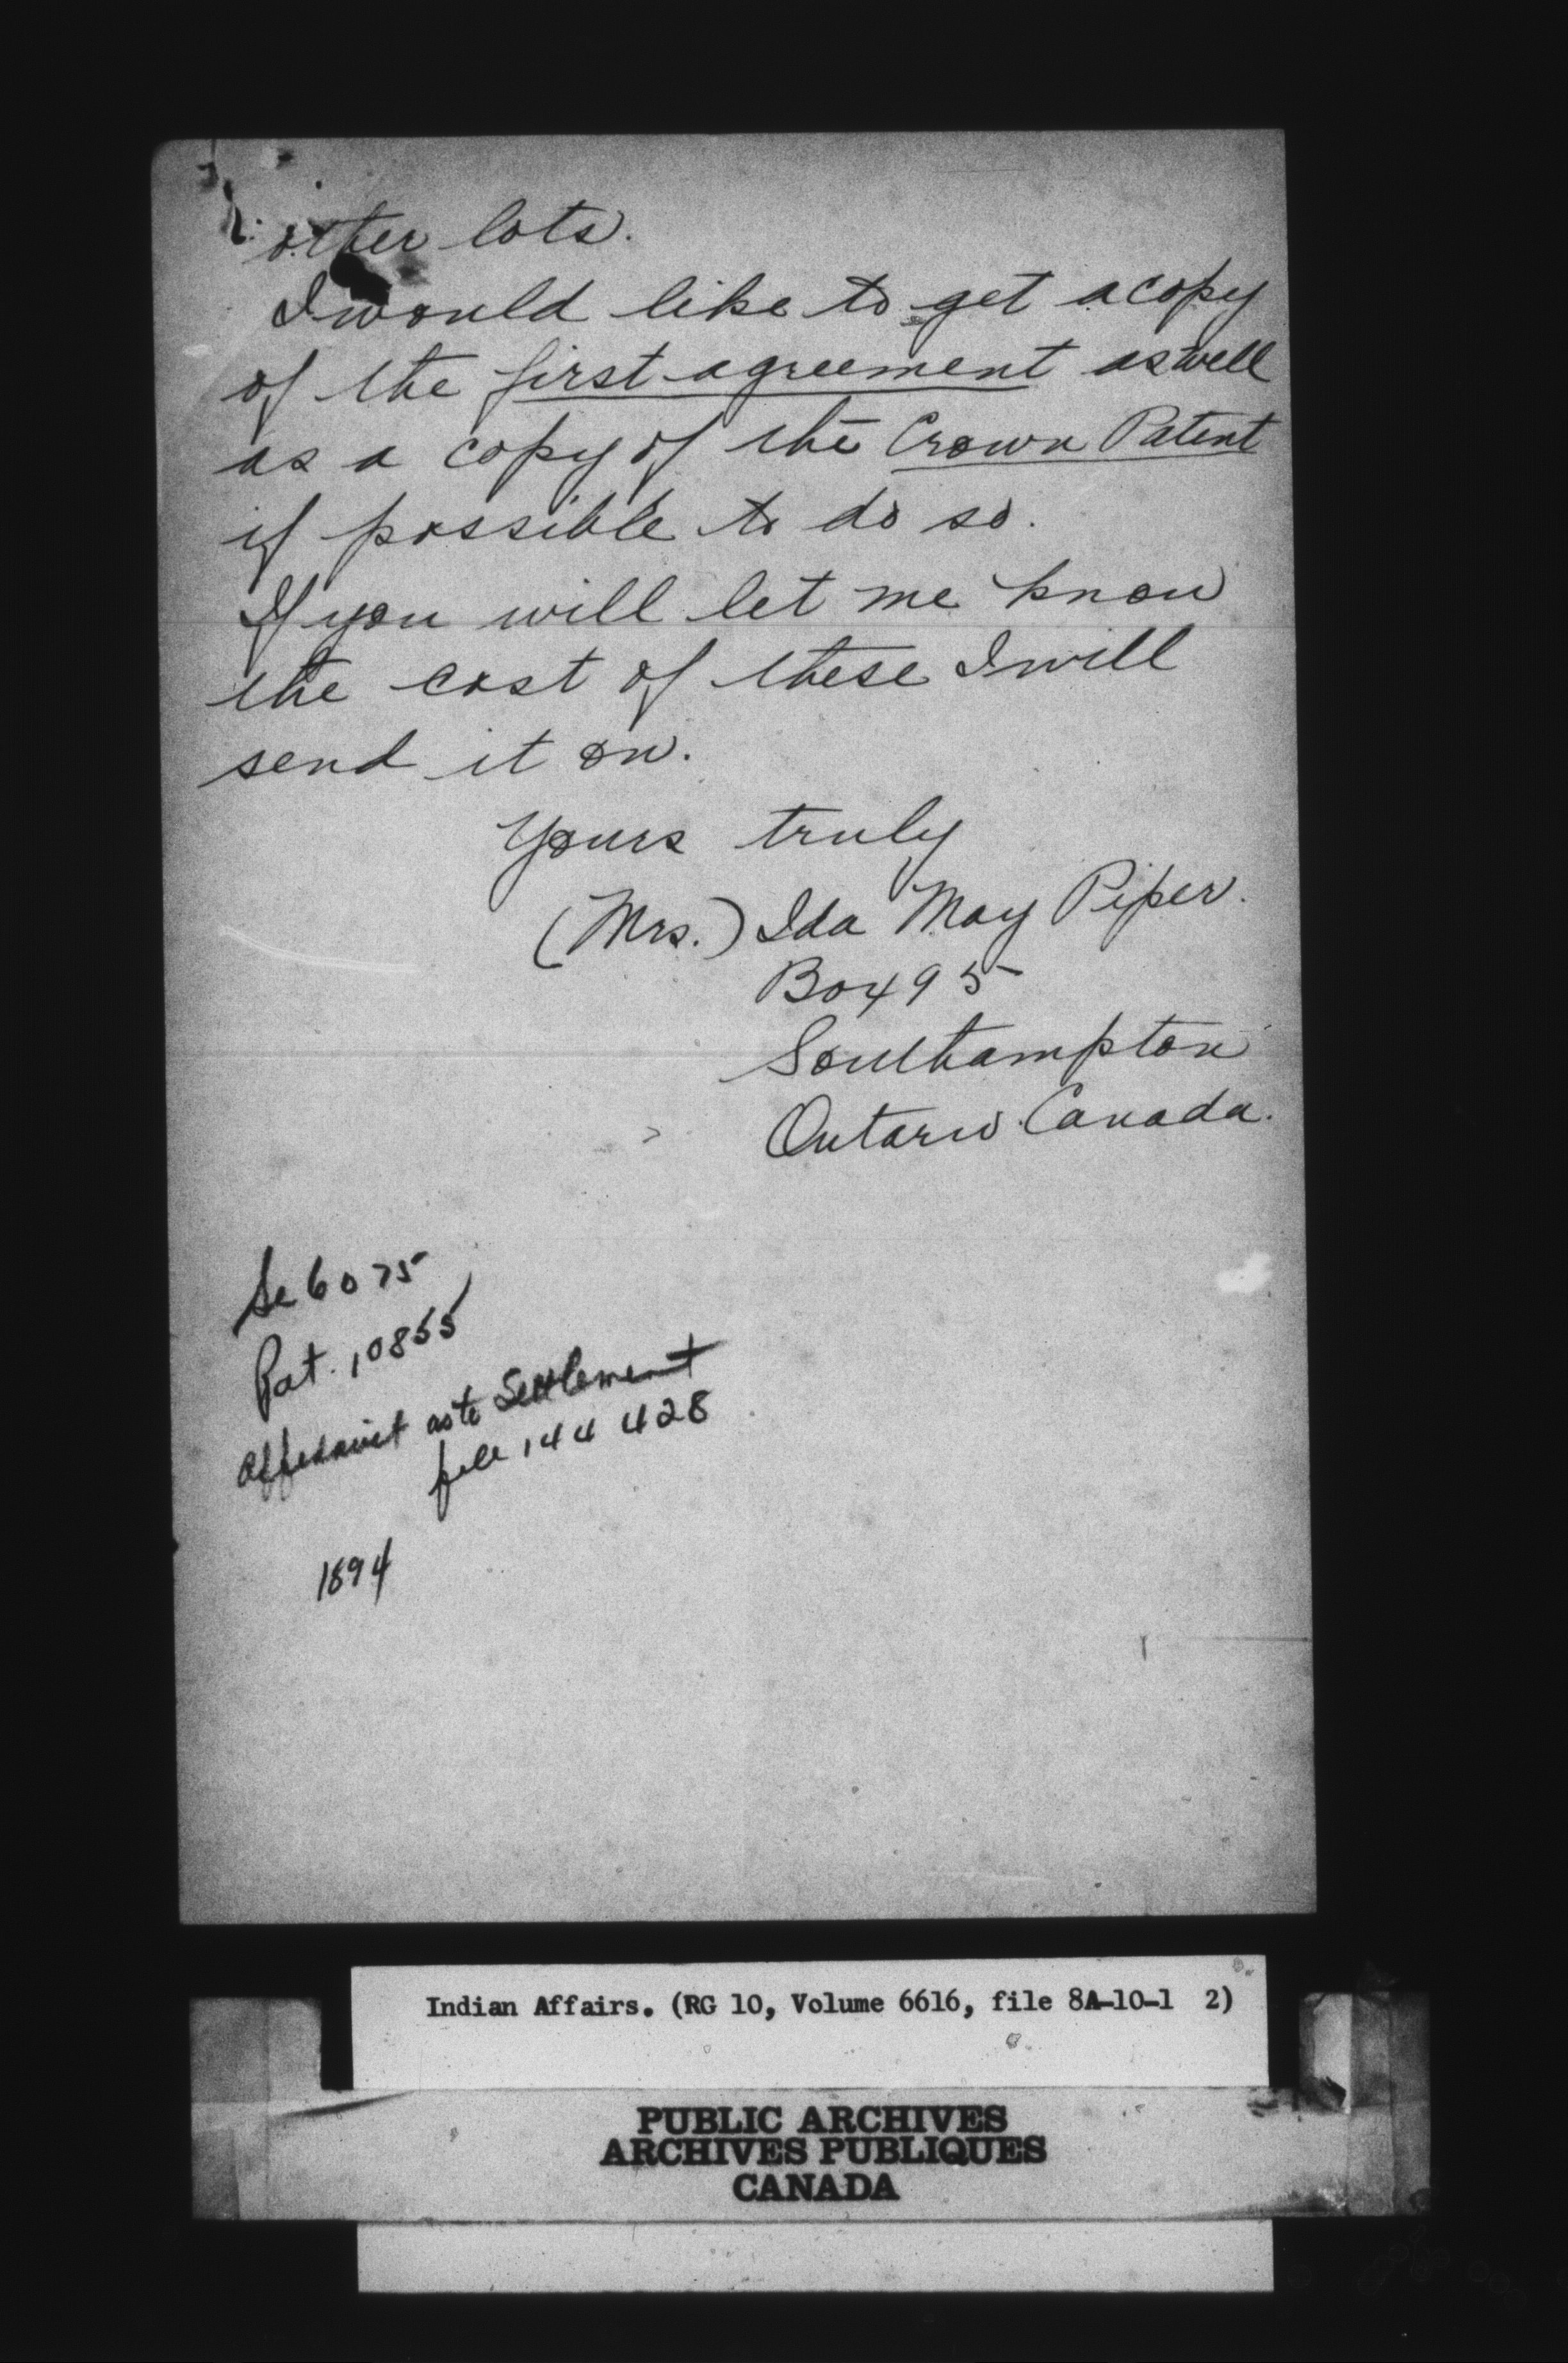 other lots.
I would like to get a copy
of the first agreement as well
as a copy of the Crown Patent
if possible to do so.
If you will let me know
the cost of these I will
send it on.
Yours truly
(Mrs.) Ida May Piper.
Box 95
Southampton
Ontario Canada.
6075
Pat. 10855
Affidavit as to Settlement
file 144 428
1894
Indian Affairs. (RG 10, Volume 6616, file 8A-10-1 2)
PUBLIC ARCHIVES
ARCHIVES PUBLIQUES
CANADA